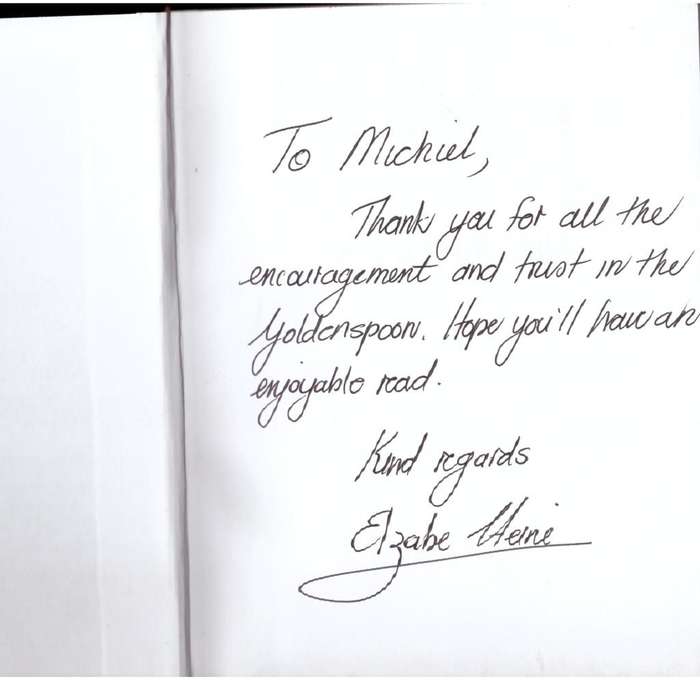 To Michiel,
Thank you for all the
encouragement and trust in the
Goldenspoon. Hope you'll have an
enjoyable read.
Kind regards
Elzabe Heine